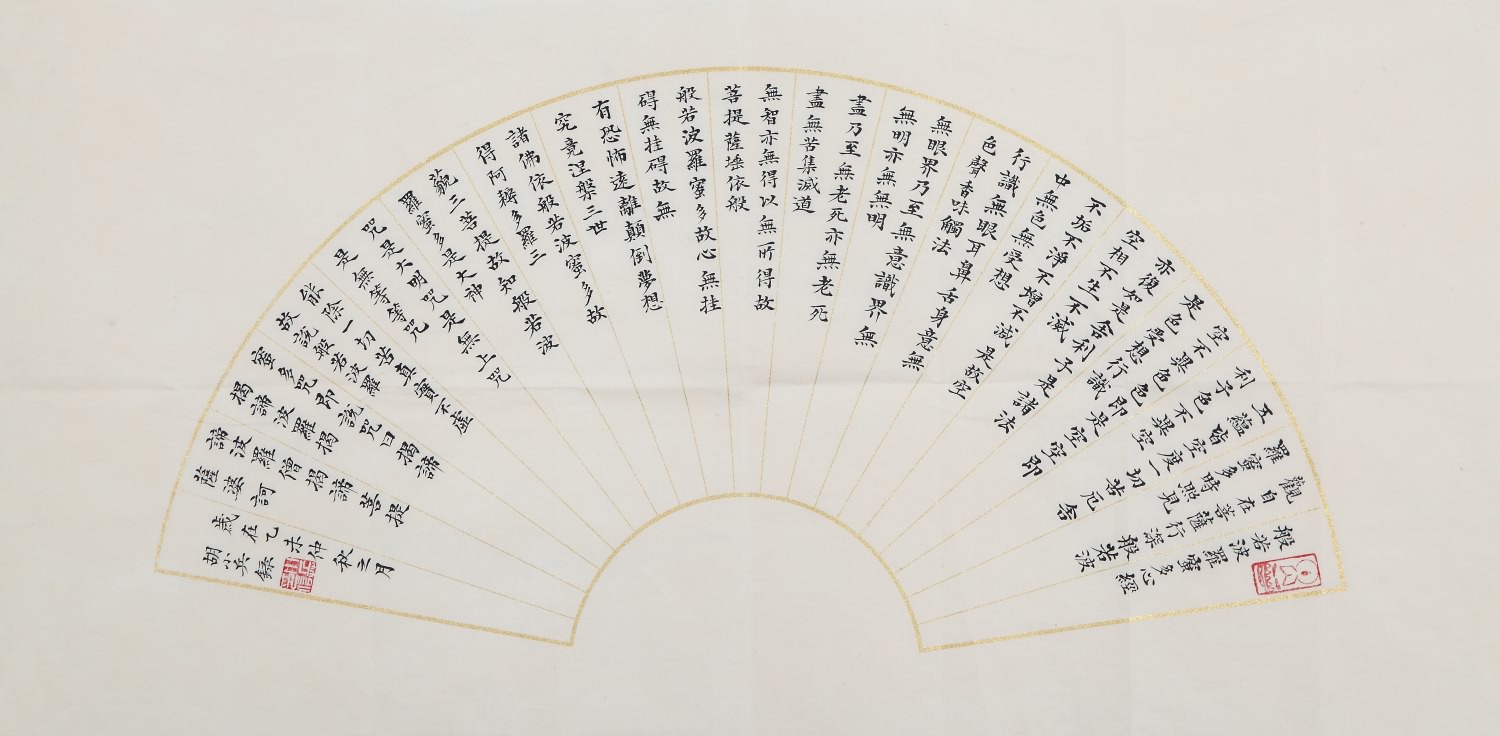 般若波羅蜜多心經
觀自在菩薩行深般若波
羅蜜多時照見
五蘊皆空度一切苦厄舍
利子色不異空
空不異色色即是空空即
是色受想行識
亦復如是舍利子是諸法
空相不生不滅
不垢不淨不增不減是故空
中無色無受想
行識無眼耳鼻舌身意無
色聲香味觸法
無眼界乃至無意識界無
無明亦無無明
盡乃至無老死亦無老死
盡無苦集滅道
無智亦無得以無所得故
菩提薩埵依般
般若波羅蜜多故心無挂
碍無挂碍故無
有恐怖遠離顛倒夢想
究竟涅槃三世
諸佛依般若波蜜多故
得阿耨多羅三
藐三菩提故知般若波
羅蜜多是大神
咒是大明咒是無上咒
是無等等咒
能除一切苦真實不虛
故說般若波羅
蜜多咒即說咒曰揭諦
揭諦波羅揭
諦波羅僧揭諦菩提
薩婆訶
歲在乙未仲秋之月
胡小兵錄